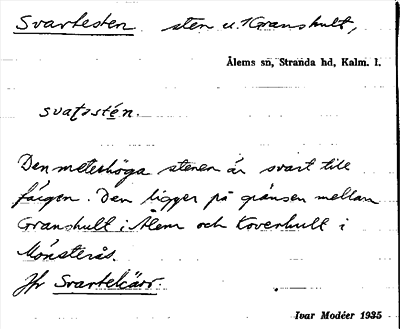 Svartesten sten u. Granshult,
Ålems sn, Stranda hd, Kalm. l.
svat̯əstén.
Den meterhöga stenen är svart till
färgen. Den ligger på gränsen mellan
Granshult i Ålem och Koverhult i
Mönsterås.
Jfr Svartekärr.
Ivar Modéer 1935